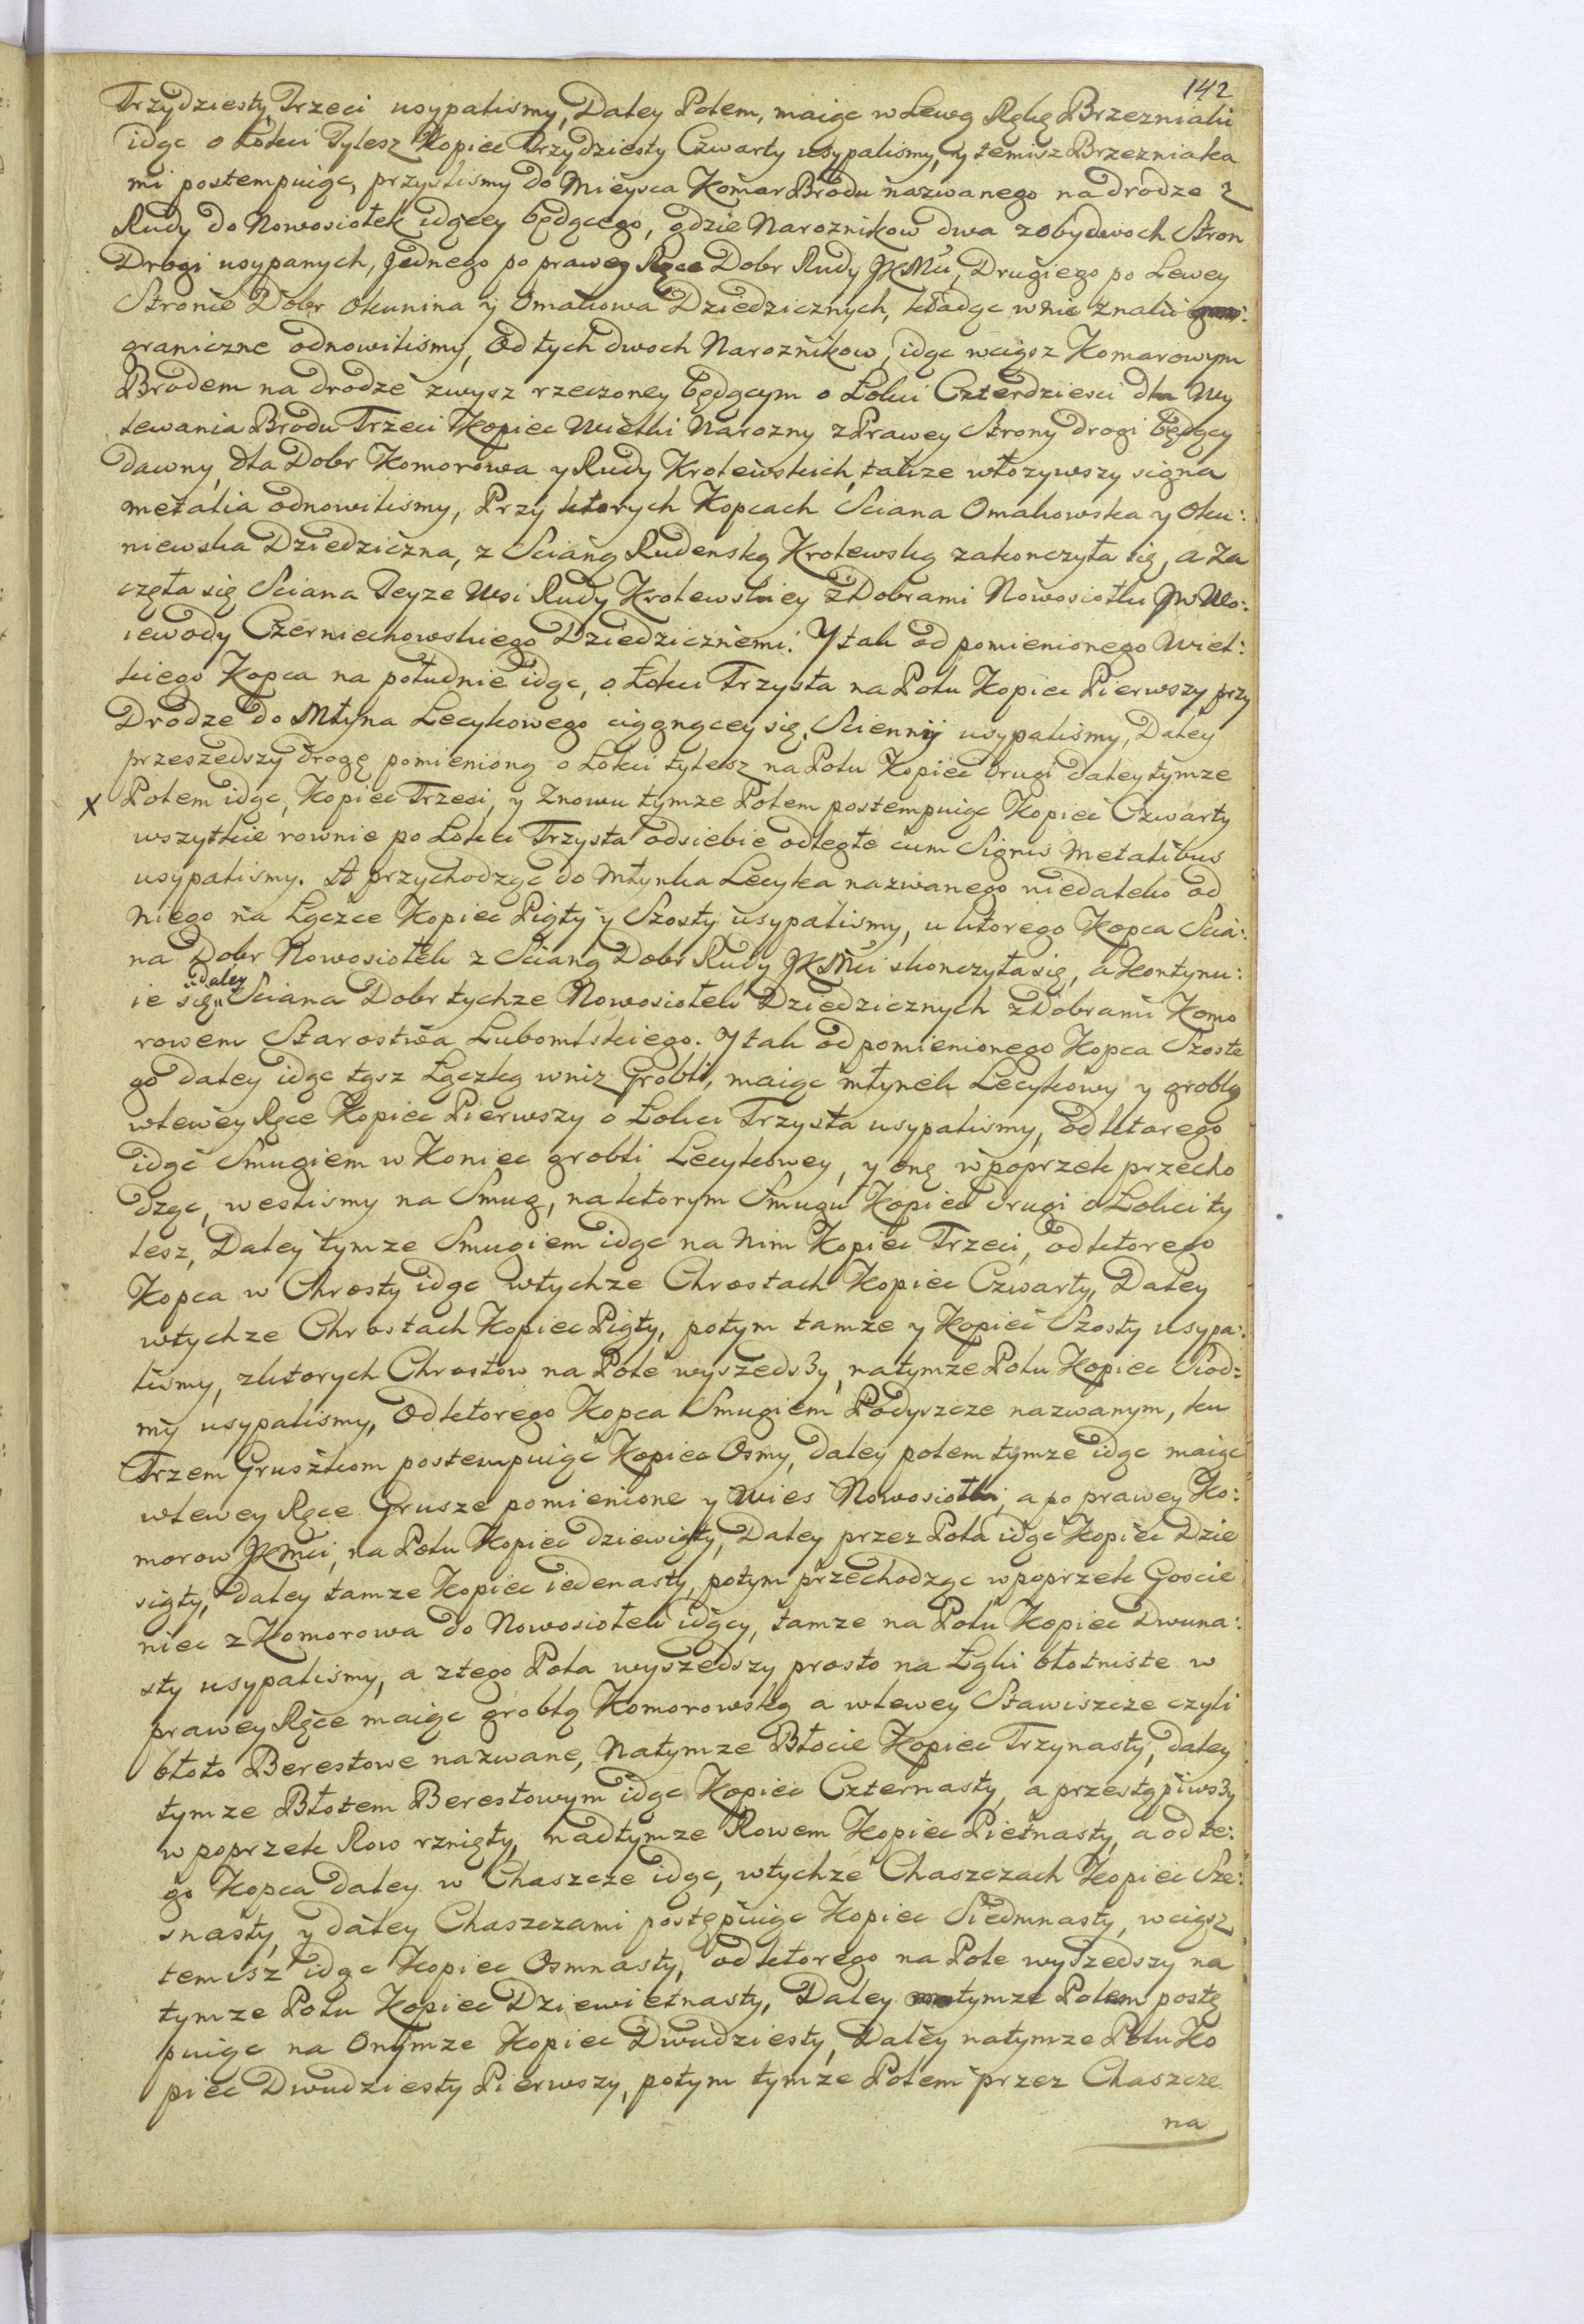 142
Trzydziesty Trzeci usypaliśmy, Daley Polem, maiąc w Lewą Rękę Brzezniaki
idąc o Łokci Tylesz Kopiec Trzydziesty Czwarty usypalismy, y temisz Brzezniaka
mi postempuiąc, przyszlismy do Mieysca Komar Brodu nazwanego na drodze z
Rudy do Nowosiołek idącey będącego, gdzie Naroznikow dwa z obydwoch Stron
Drogi usypanych, Jednego po prawey Ręce Dobr Rudy JKMci, Drugiego po Lewey
Stronie Dobr Okunina y Omakowa Dziedzicznych, kładąc w nie znaki
graniczne odnowilismy, Od tych dwoch Naroznikow, idąc wciąsz Komarowym
Brodem na drodze zwysz rzeczoney będącym o Łokci Czterdziesci dla Wy
lewania Brodu Trzeci Kopiec Wielki Narozny z Prawey Strony drogi będący
dawny, dla Dobr Komorowa y Rudy Krolewskich, takze włozywszy signa
metalia odnowilismy, Przy ktorych Kopcach Sciana Omakowska y Oku:
niewska Dziedziczna, z Scianą Rudenską Krolewską zakonczyła się, a Za
częła się Sciana Teyze Wsi Rudy Krolewskiey z Dobrami Nowosiołki JW Wo:
iewody Czerniechowskiego Dziedzicznemi. Y tak od pomienionego Wiel:
kiego Kopca na południe idąc, o Łokci Trzysta na Polu Kopiec Pierwszy przy
Drodze do Młyna Lecykowego ciągnącey się, Scienny usypalismy, Daley
przeszedszy drogę pomienioną o Łokci tylesz na Polu Kopiec Drugi daley tymze
x Polem idąc, Kopiec Trzeci, y Znowu tymze Polem postempuiąc Kopiec Czwarty
wszytkie rownie po Łokci Trzysta od siebie odległe cum Signis Metalibus
usypalismy. A przychodząc do Młynka Lecyka nazwanego niedaleko od
Niego na Łączce Kopiec Piąty y Szosty usypalismy, u ktorego Kopca Scia:
na Dobr Nowosiołek z Scianą Dobr Rudy JKMci skonczyła się, a kontynu:
ie się daley Sciana Dobr tychze Nowosiołek Dziedzicznych z Dobrami Komo
rowem Starostwa Lubomlskiego. Y tak od pomienionego Kopca Szoste
go daley idąc tąsz Łączką wniz Grobli, maiąc młynek Lecykowy y groblą
w lewey Ręce Kopiec Pierwszy o Łokci Trzysta usypalismy, od ktorego
idąc Smugiem w Koniec grobli Lecykowey, y onę w poprzek przecho
dząc, weslismy na Smug, na ktorym Smugu Kopiec drugi o Łokci ty
lesz, Daley tymze Smugiem idąc na Nim Kopiec Trzeci, od ktorego
Kopca w Chrosty idąc w tychze Chrostach Kopiec Czwarty, Daley
w tychze Chrostach Kopiec Piąty, potym tamze y Kopiec Szosty usypa:
lismy, z ktorych Chrostow na Pole wyszedszy, na tymze Polu Kopiec Siod:
my usypalismy, Od ktorego Kopca Smugiem Podyszcze nazwanym, ku
Trzem Gruszkom postempuiąc Kopiec Osmy, daley polem tymze idąc maiąc
w lewey Ręce Grusze pomienione y Wies Nowosiołki, a po prawey Ko:
morow JKMci, na Polu Kopiec dziewiąty, Daley przez Pola idąc Kopiec Dzie
siąty, daley tamze Kopiec iedenasty, potym przechodząc w poprzek Goscie
niec z Komorowa do Nowosiołek idący, tamze na Polu Kopiec Dwuna:
sty usypalismy, a z tego Pola wyszedszy prosto na Łąki błotniste w
prawey Ręce maiąc groblą Komorowską a w lewey Stawiszcze czyli
błoto Berestowe nazwane, Na tymze Błocie Kopiec Trzynasty, daley
tymze Błotem Berestowym idąc Kopiec Czternasty, a przestąpiwszy
w poprzek Row rznięty, nad tymze Rowem Kopiec Pietnasty, a od te:
go Kopca daley w Chaszcze idąc, w tychze Chaszczach Kopiec Sze:
snasty, y daley Chaszczami postępuiąc Kopiec Siedmnasty, wciąsz
temisz idąc Kopiec Osmnasty, od ktorego na Pole wyszedszy na
tymze Polu Kopiec Dziewietnasty, Daley tymze Polem postę
puiąc na Onymze Kopiec Dwudziesty, Daley na tymze Polu Ko
piec Dwudziesty Pierwszy, potym tymze Polem przez Chaszcze
na